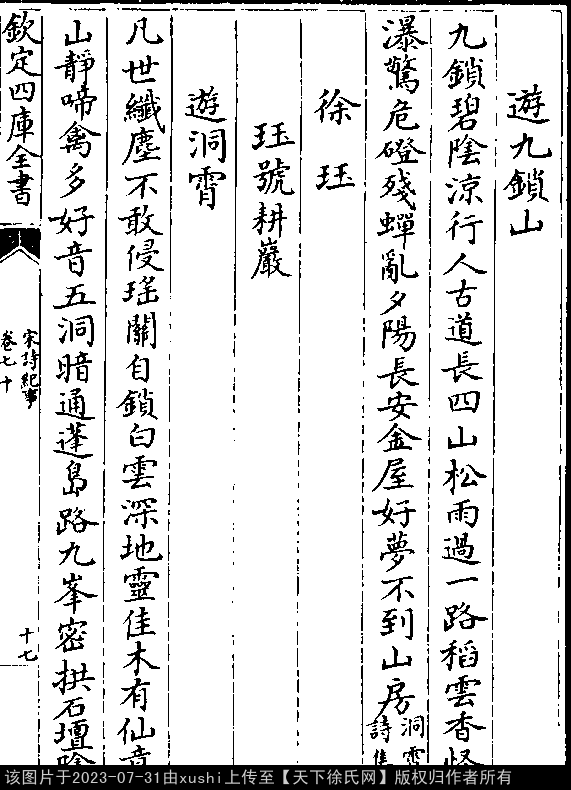 遊九鎖山
九鎖碧陰涼行人古道長四山松雨過一路稻雲香怪
瀑驚危磴殘蟬亂夕陽長安金屋好夢不到山房洞霄詩集
徐珏
珏號耕巖
遊洞霄
凡世纖塵不敢侵瑤關自鎖白雲深地靈佳木有仙意
山靜啼禽多好音五洞暗通蓬島路九峯密拱石壇陰
欽定四庫全書
宋詩紀事
卷七十
十七
该图片于2023-07-31由xushi上传至【天下徐氏网】版权归作者所有